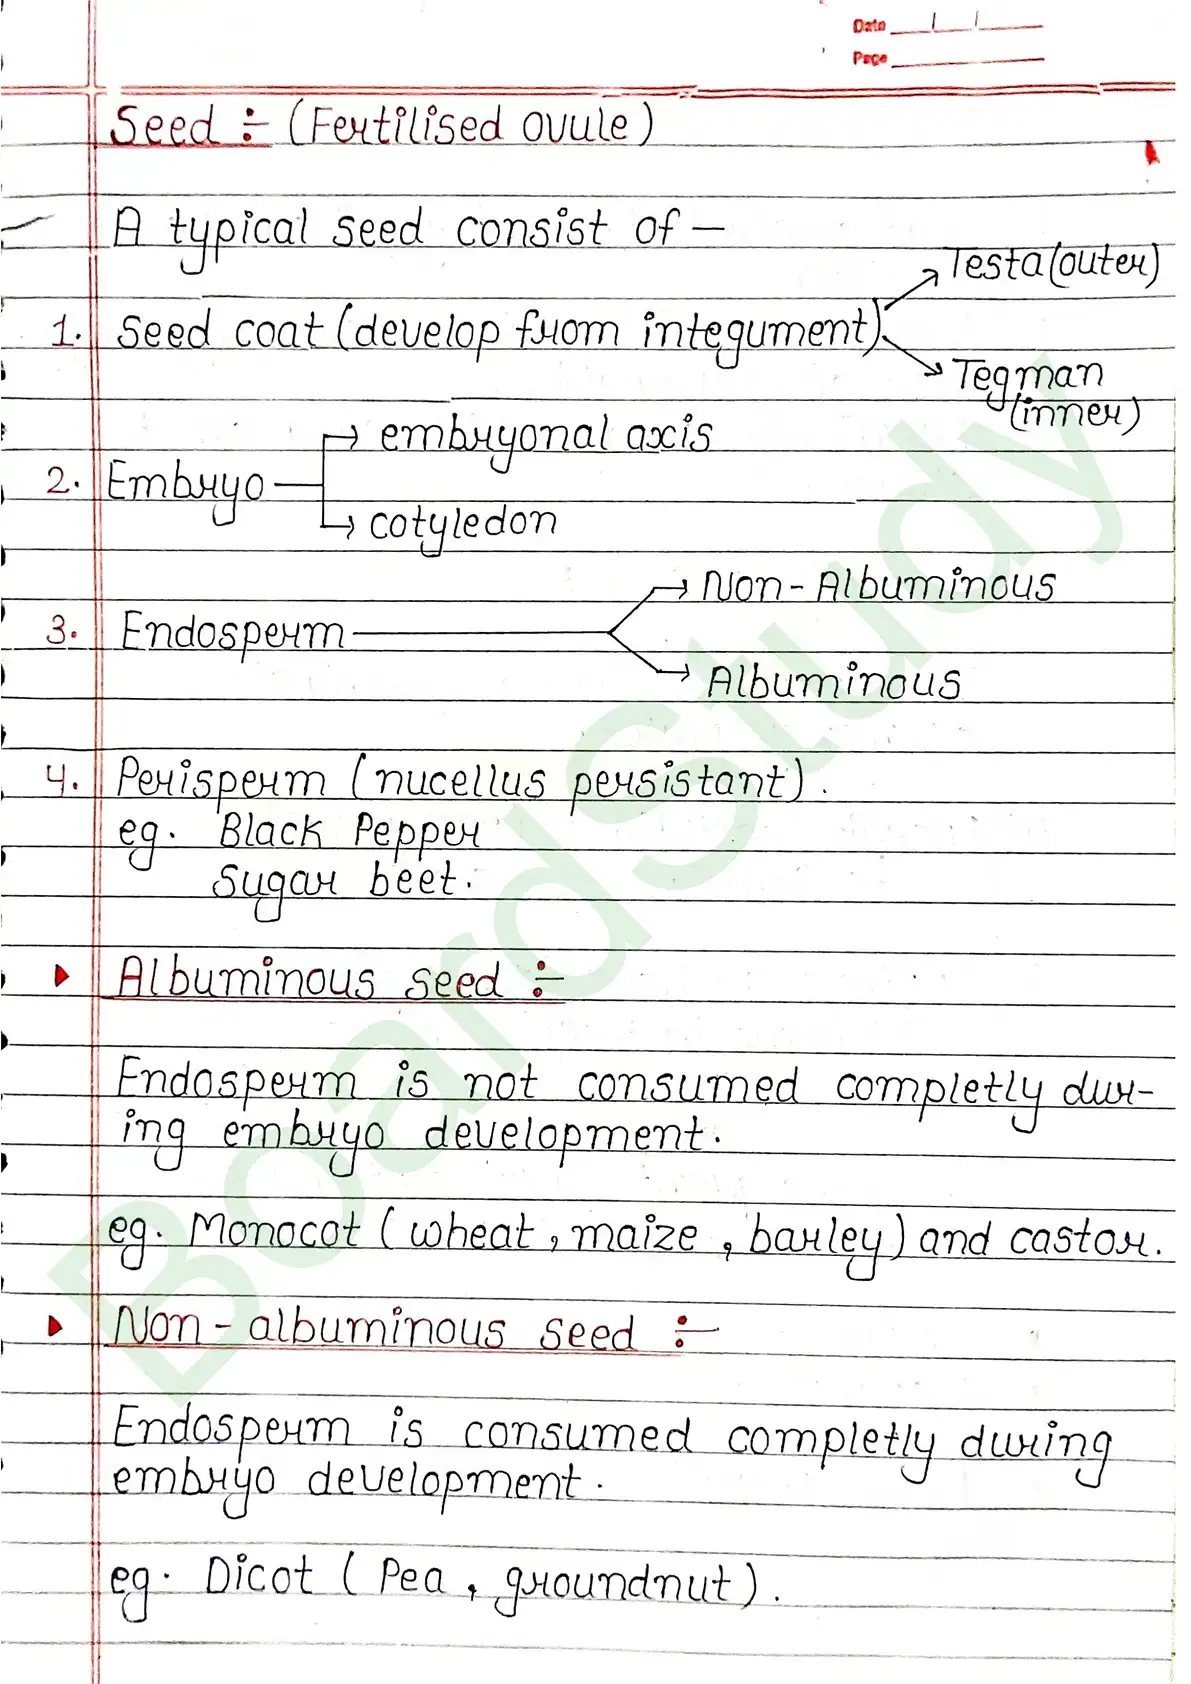 Date
Page
Seed ÷ (Fertilised ovule)
A typical seed consist of —
Testa (outer)
1. Seed coat (develop from integument)
Tegman
(inner)
embryonal axis
2. Embryo
cotyledon
Non - Albuminous
3. Endosperm
Albuminous
4. Perisperm (nucellus persistant).
eg. Black Pepper
Sugar beet.
Albuminous seed ÷
Endosperm is not consumed completly dur-
ing embryo development.
eg. Monocot (wheat, maize, barley) and castor.
Non - albuminous seed ÷
Endosperm is consumed completly during
embryo development.
eg. Dicot (Pea, groundnut).
BoardStudy